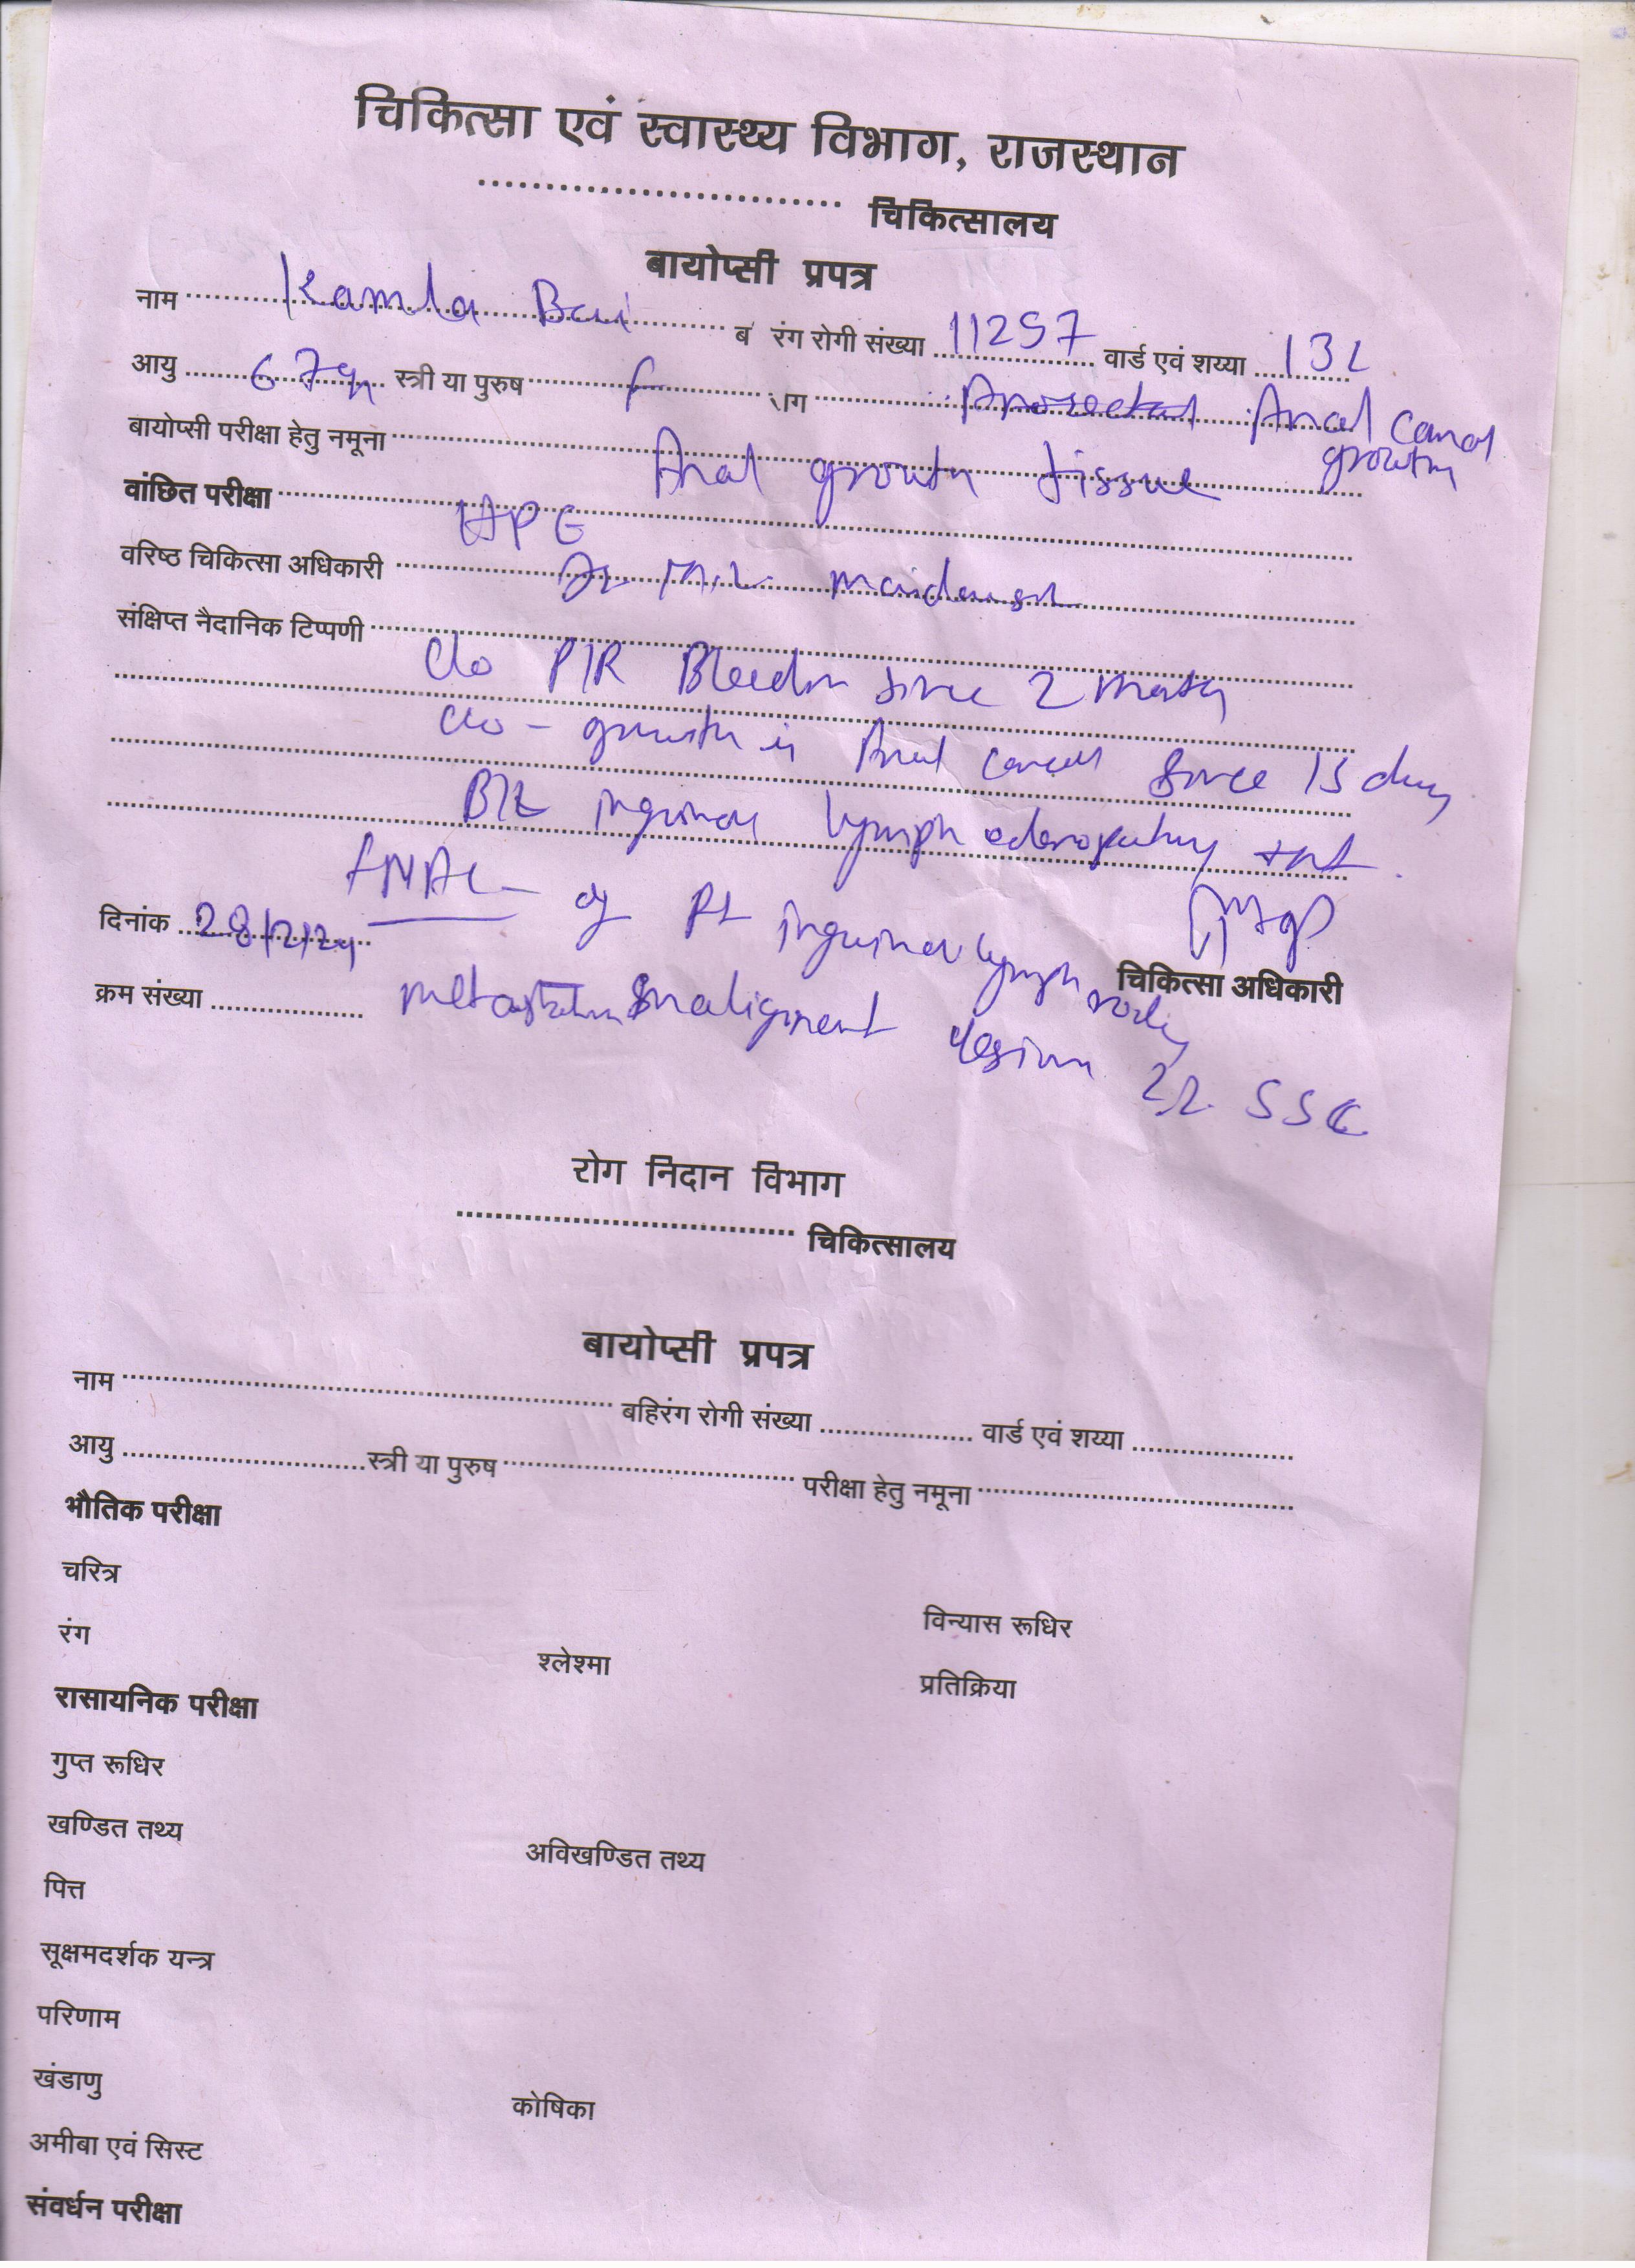 चिकित्सा एवं स्वास्थ्य विभाग, राजस्थान
.............................. चिकित्सालय
बायोप्सी प्रपत्र
नाम Kamla Bai ब रंग रोगी संख्या 11257 वार्ड एवं शय्या 132
आयु 67yr स्त्री या पुरुष F ग Anorectal Anal canal growth
बायोप्सी परीक्षा हेतु नमूना Anal growth tissue
वांछित परीक्षा HPE
वरिष्ठ चिकित्सा अधिकारी Dr M.L.
संक्षिप्त नैदानिक टिप्पणी
C/o P/R Bleeding since 2 month
C/o - growth in Anal canal since 15 day
B/L inguinal lymphadenopathy +nt
FNAC - of Rt inguinal lymph node
दिनांक 28/2/24
चिकित्सा अधिकारी
क्रम संख्या ................... metastatic malignant lesion SSC
रोग निदान विभाग
.............................. चिकित्सालय
बायोप्सी प्रपत्र
नाम .............................. बहिरंग रोगी संख्या ................... वार्ड एवं शय्या ...................
आयु .............................. स्त्री या पुरुष .............................. परीक्षा हेतु नमूना ..............................
भौतिक परीक्षा
चरित्र
विन्यास रूधिर
रंग श्लेश्मा प्रतिक्रिया
रासायनिक परीक्षा
गुप्त रूधिर
खण्डित तथ्य अविखण्डित तथ्य
पित्त
सूक्षमदर्शक यन्त्र
परिणाम
खंडाणु कोषिका
अमीबा एवं सिस्ट
संवर्धन परीक्षा